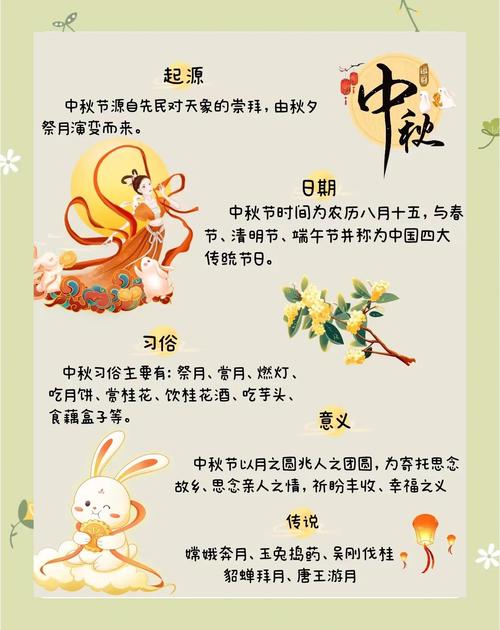 起源
中秋节源自先民对天象的崇拜,由秋夕
祭月演变而来。
中秋
日期
中秋节时间为农历八月十五,与春
节、清明节、端午节并称为中国四大
传统节日。
习俗
中秋习俗主要有:祭月、赏月、燃灯、
吃月饼、赏桂花、饮桂花酒、吃芋头、
食藕盒子等。
意义
中秋节以月之圆兆人之团圆,为寄托思念
故乡、思念亲人之情,祈盼丰收、幸福之义
传说
嫦娥奔月、玉兔捣药、吴刚伐桂
貂蝉拜月、唐王游月